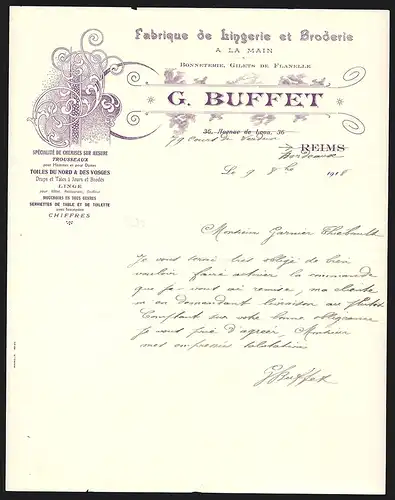 Fabrique de Lingerie et Broderie
A LA MAIN
BONNETERIE, GILETS DE FLANELLE
G. BUFFET
36, Avenue de Laon, 36
79 Cours de
REIMS
Bordeaux
Le 9 8bre 1918
SPÉCIALITÉ DE CHEMISES SUR MESURE
TROUSSEAUX
pour Hommes et pour Dames
TOILES DU NORD & DES VOSGES
Draps et Taies à Jours et Brodés
LINGE
pour Hôtel, Restaurant, Coiffeur
MOUCHOIRS EN TOUS GENRES
SERVIETTES DE TABLE ET DE TOILETTE
CHIFFRES
Monsieur Garnier Thiebault
Je vous serai bien obligé de bien
vouloir faire activer la commande
que je vous ai remise, ma cliente
m'en demandant livraison au plutôt
Comptant sur votre bonne obligeance
je vous prie d'agréer, Monsieur
mes empressées salutations
G Buffet